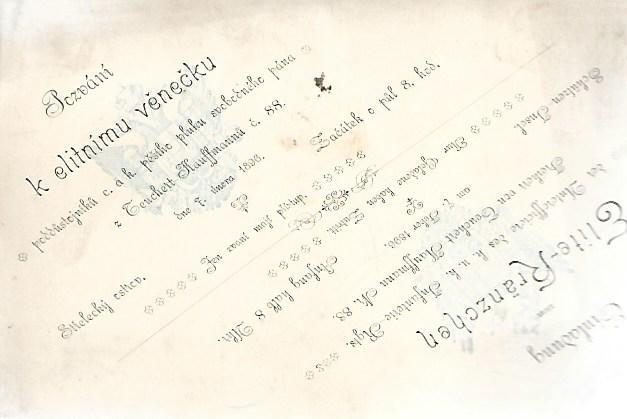 Pozvání
k elitnímu věnečku
poddůstojníků c. a k. pěšího pluku svobodného pána
z Teuchert Kauffmannů č. 88.
dne 7. února 1896.
Začátek o půl 8. hod.
Jen zvaní mají přístup.
Střelecký ostrov.
Einladung
zum
Elite-Kränzchen
der Unterofficiere des k. u. k. Infanterie Rgts.
Freiherr von Teuchert Kauffmann Nr. 88.
am 7. Feber 1896.
Nur Geladene haben Zutritt.
Schützen Insel.
Anfang halb 8 Uhr.